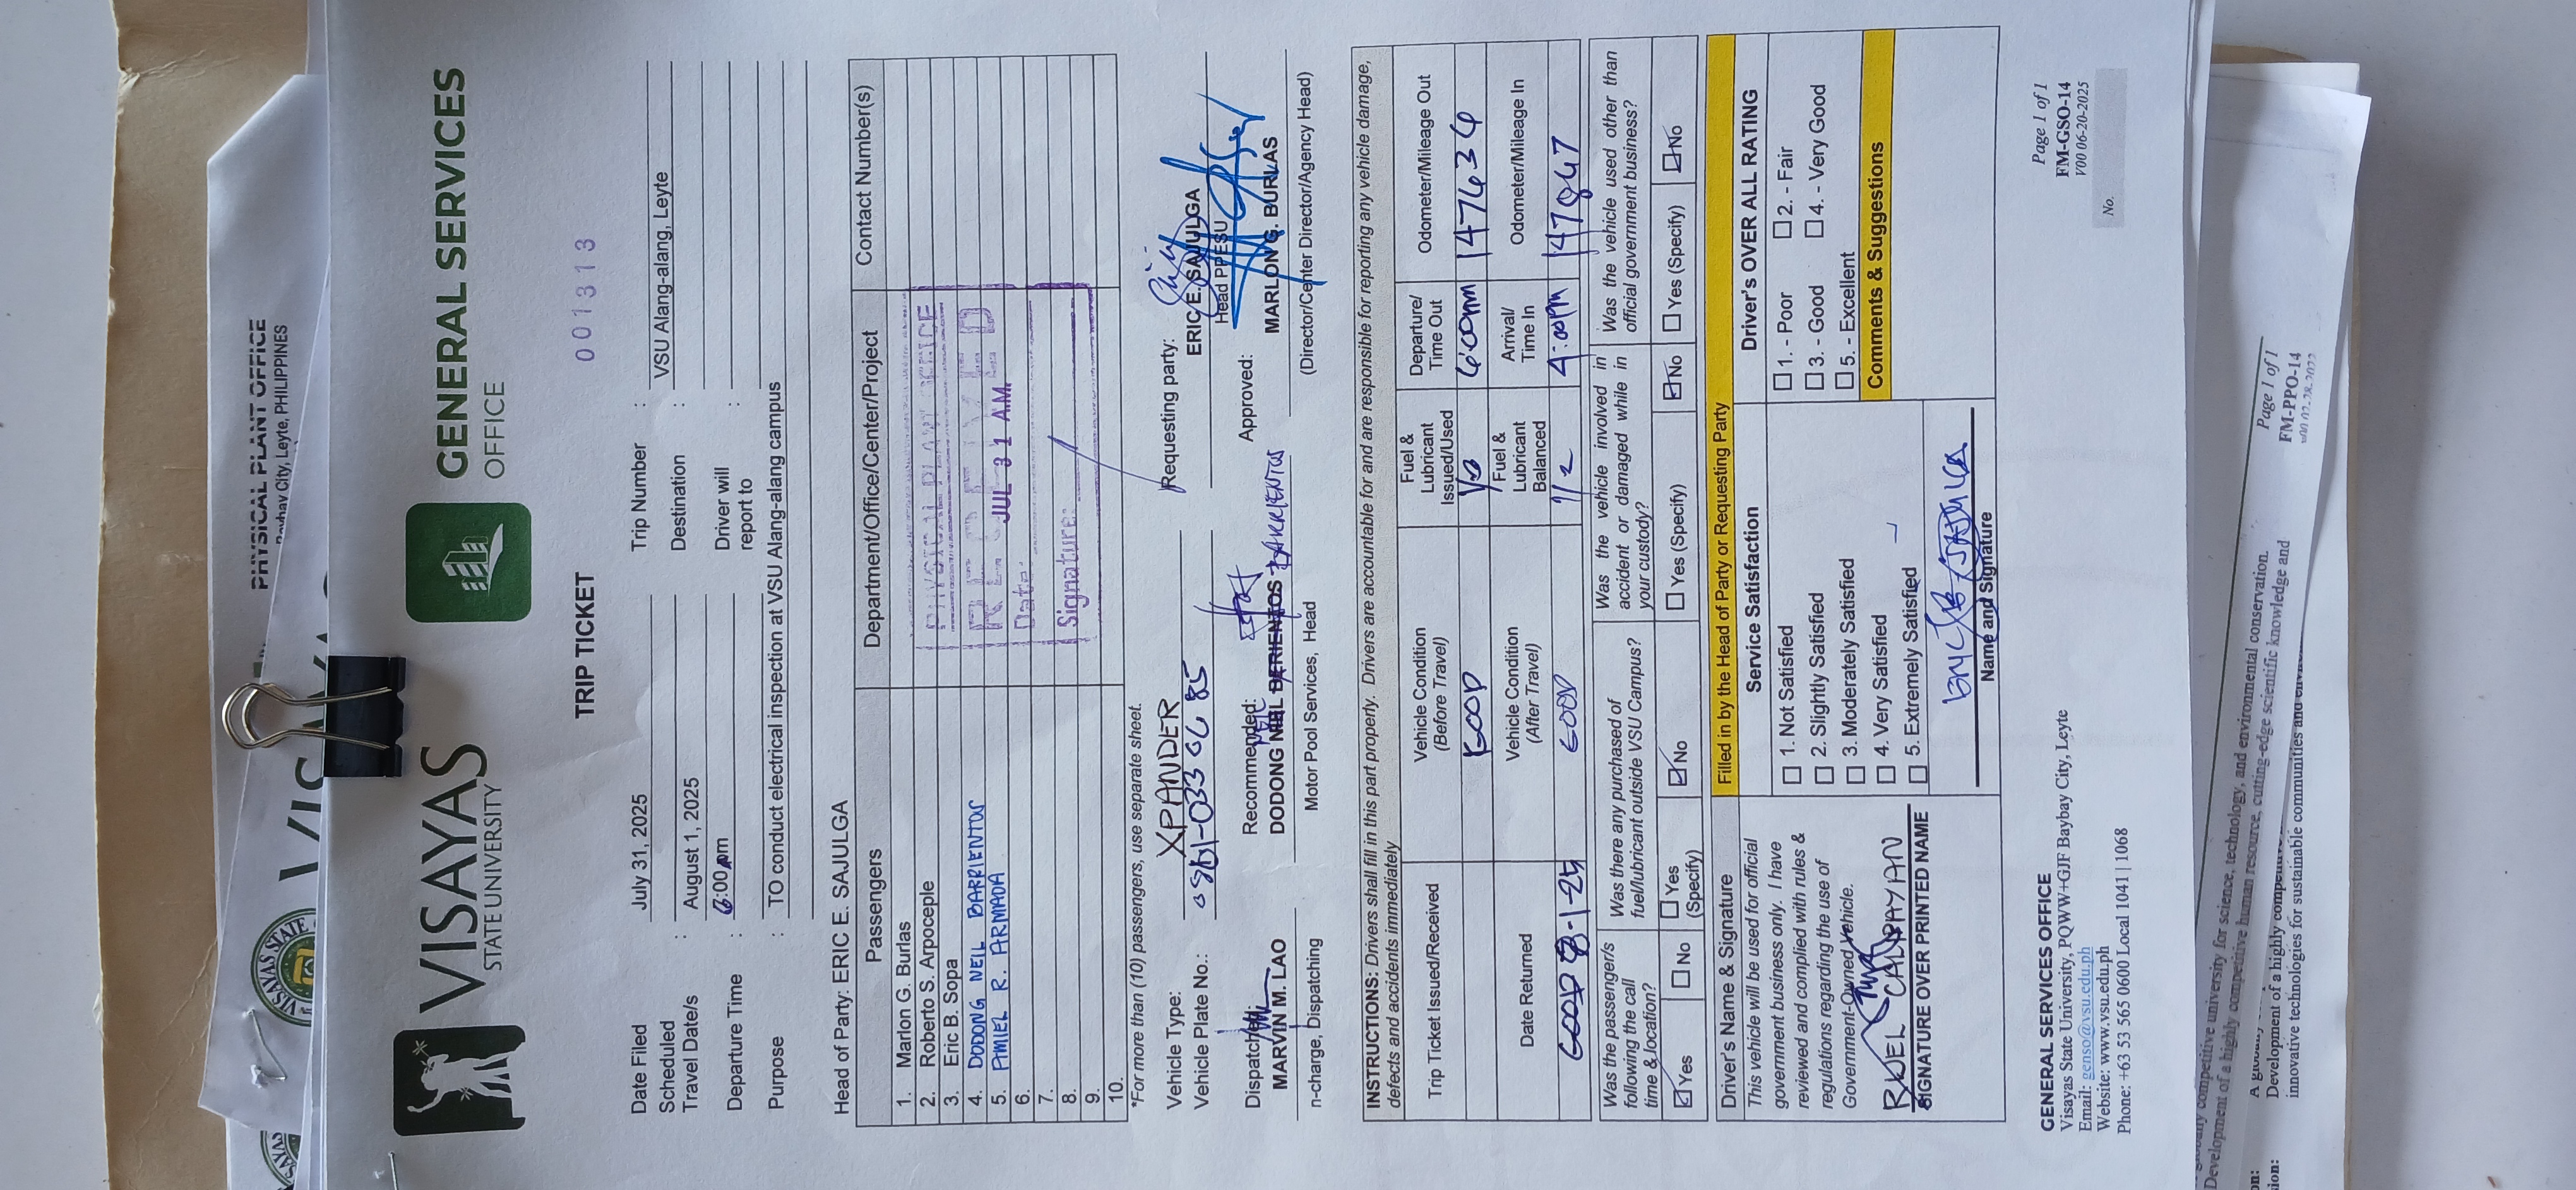 PHYSICAL PLANT OFFICE
Baybay City, Leyte, PHILIPPINES
VISAYAS STATE
VISAYAS
STATE UNIVERSITY
GENERAL SERVICES
OFFICE
TRIP TICKET
001313
Date Filed July 31, 2025 Trip Number :
Scheduled Travel Date/s : August 1, 2025 Destination : VSU Alang-alang, Leyte
Departure Time : 6:00am Driver will report to :
Purpose : TO conduct electrical inspection at VSU Alang-alang campus
Head of Party: ERIC E. SAJULGA
Passengers Department/Office/Center/Project Contact Number(s)
1. Marlon G. Burlas
2. Roberto S. Arpoceple
3. Eric B. Sopa
4. DODONG NEIL BARRIENTOS
5. AMIEL R. ARMADA
6.
7.
8.
9.
10.
PHYSICAL PLANT OFFICE
RECEIVED
Date: JUL 31 AM
Signature:
*For more than (10) passengers, use separate sheet.
Vehicle Type: XPANDER
Vehicle Plate No.:
Requesting party:
ERIC E. SAJULGA
Head PPESU
Dispatched:
MARVIN M. LAO
n-charge, Dispatching
Recommended:
DODONG BARRIENTOS
Motor Pool Services, Head
Approved:
MARLON G. BURLAS
(Director/Center Director/Agency Head)
INSTRUCTIONS: Drivers shall fill in this part properly. Drivers are accountable for and are responsible for reporting any vehicle damage,
defects and accidents immediately
Trip Ticket Issued/Received Vehicle Condition (Before Travel) Fuel & Lubricant Issued/Used Departure/ Time Out Odometer/Mileage Out
GOOD 6:00am 147634
Date Returned Vehicle Condition (After Travel) Fuel & Lubricant Balanced Arrival/ Time In Odometer/Mileage In
GOOD 8-1-25 GOOD 1/2 4:00PM 147847
Was the passenger/s following the call time & location?
Yes No
Was there any purchased of fuel/lubricant outside VSU Campus?
Yes (Specify) No
Was the vehicle involved in accident or damaged while in your custody?
Yes (Specify) No
Was the vehicle used other than official government business?
Yes (Specify) No
Driver's Name & Signature
This vehicle will be used for official
government business only. I have
reviewed and complied with rules &
regulations regarding the use of
Government-Owned Vehicle.
SIGNATURE OVER PRINTED NAME
Filled in by the Head of Party or Requesting Party
Service Satisfaction
1. Not Satisfied
2. Slightly Satisfied
3. Moderately Satisfied
4. Very Satisfied
5. Extremely Satisfied
Name and Signature
Driver's OVER ALL RATING
1. - Poor 2. - Fair
3. - Good 4. - Very Good
5. - Excellent
Comments & Suggestions
GENERAL SERVICES OFFICE
Visayas State University, PQWW+GJF Baybay City, Leyte
Email: genso@vsu.edu.ph
Website: www.vsu.edu.ph
Phone: +63 53 565 0600 Local 1041 | 1068
Page 1 of 1
FM-GSO-14
V00 06-20-2025
No.
competitive university for science, technology, and environmental conservation.
Development of a highly competitive human resource, cutting-edge scientific knowledge and
Page 1 of 1
FM-PPO-14
Development of a highly
innovative technologies for sustainable communities and